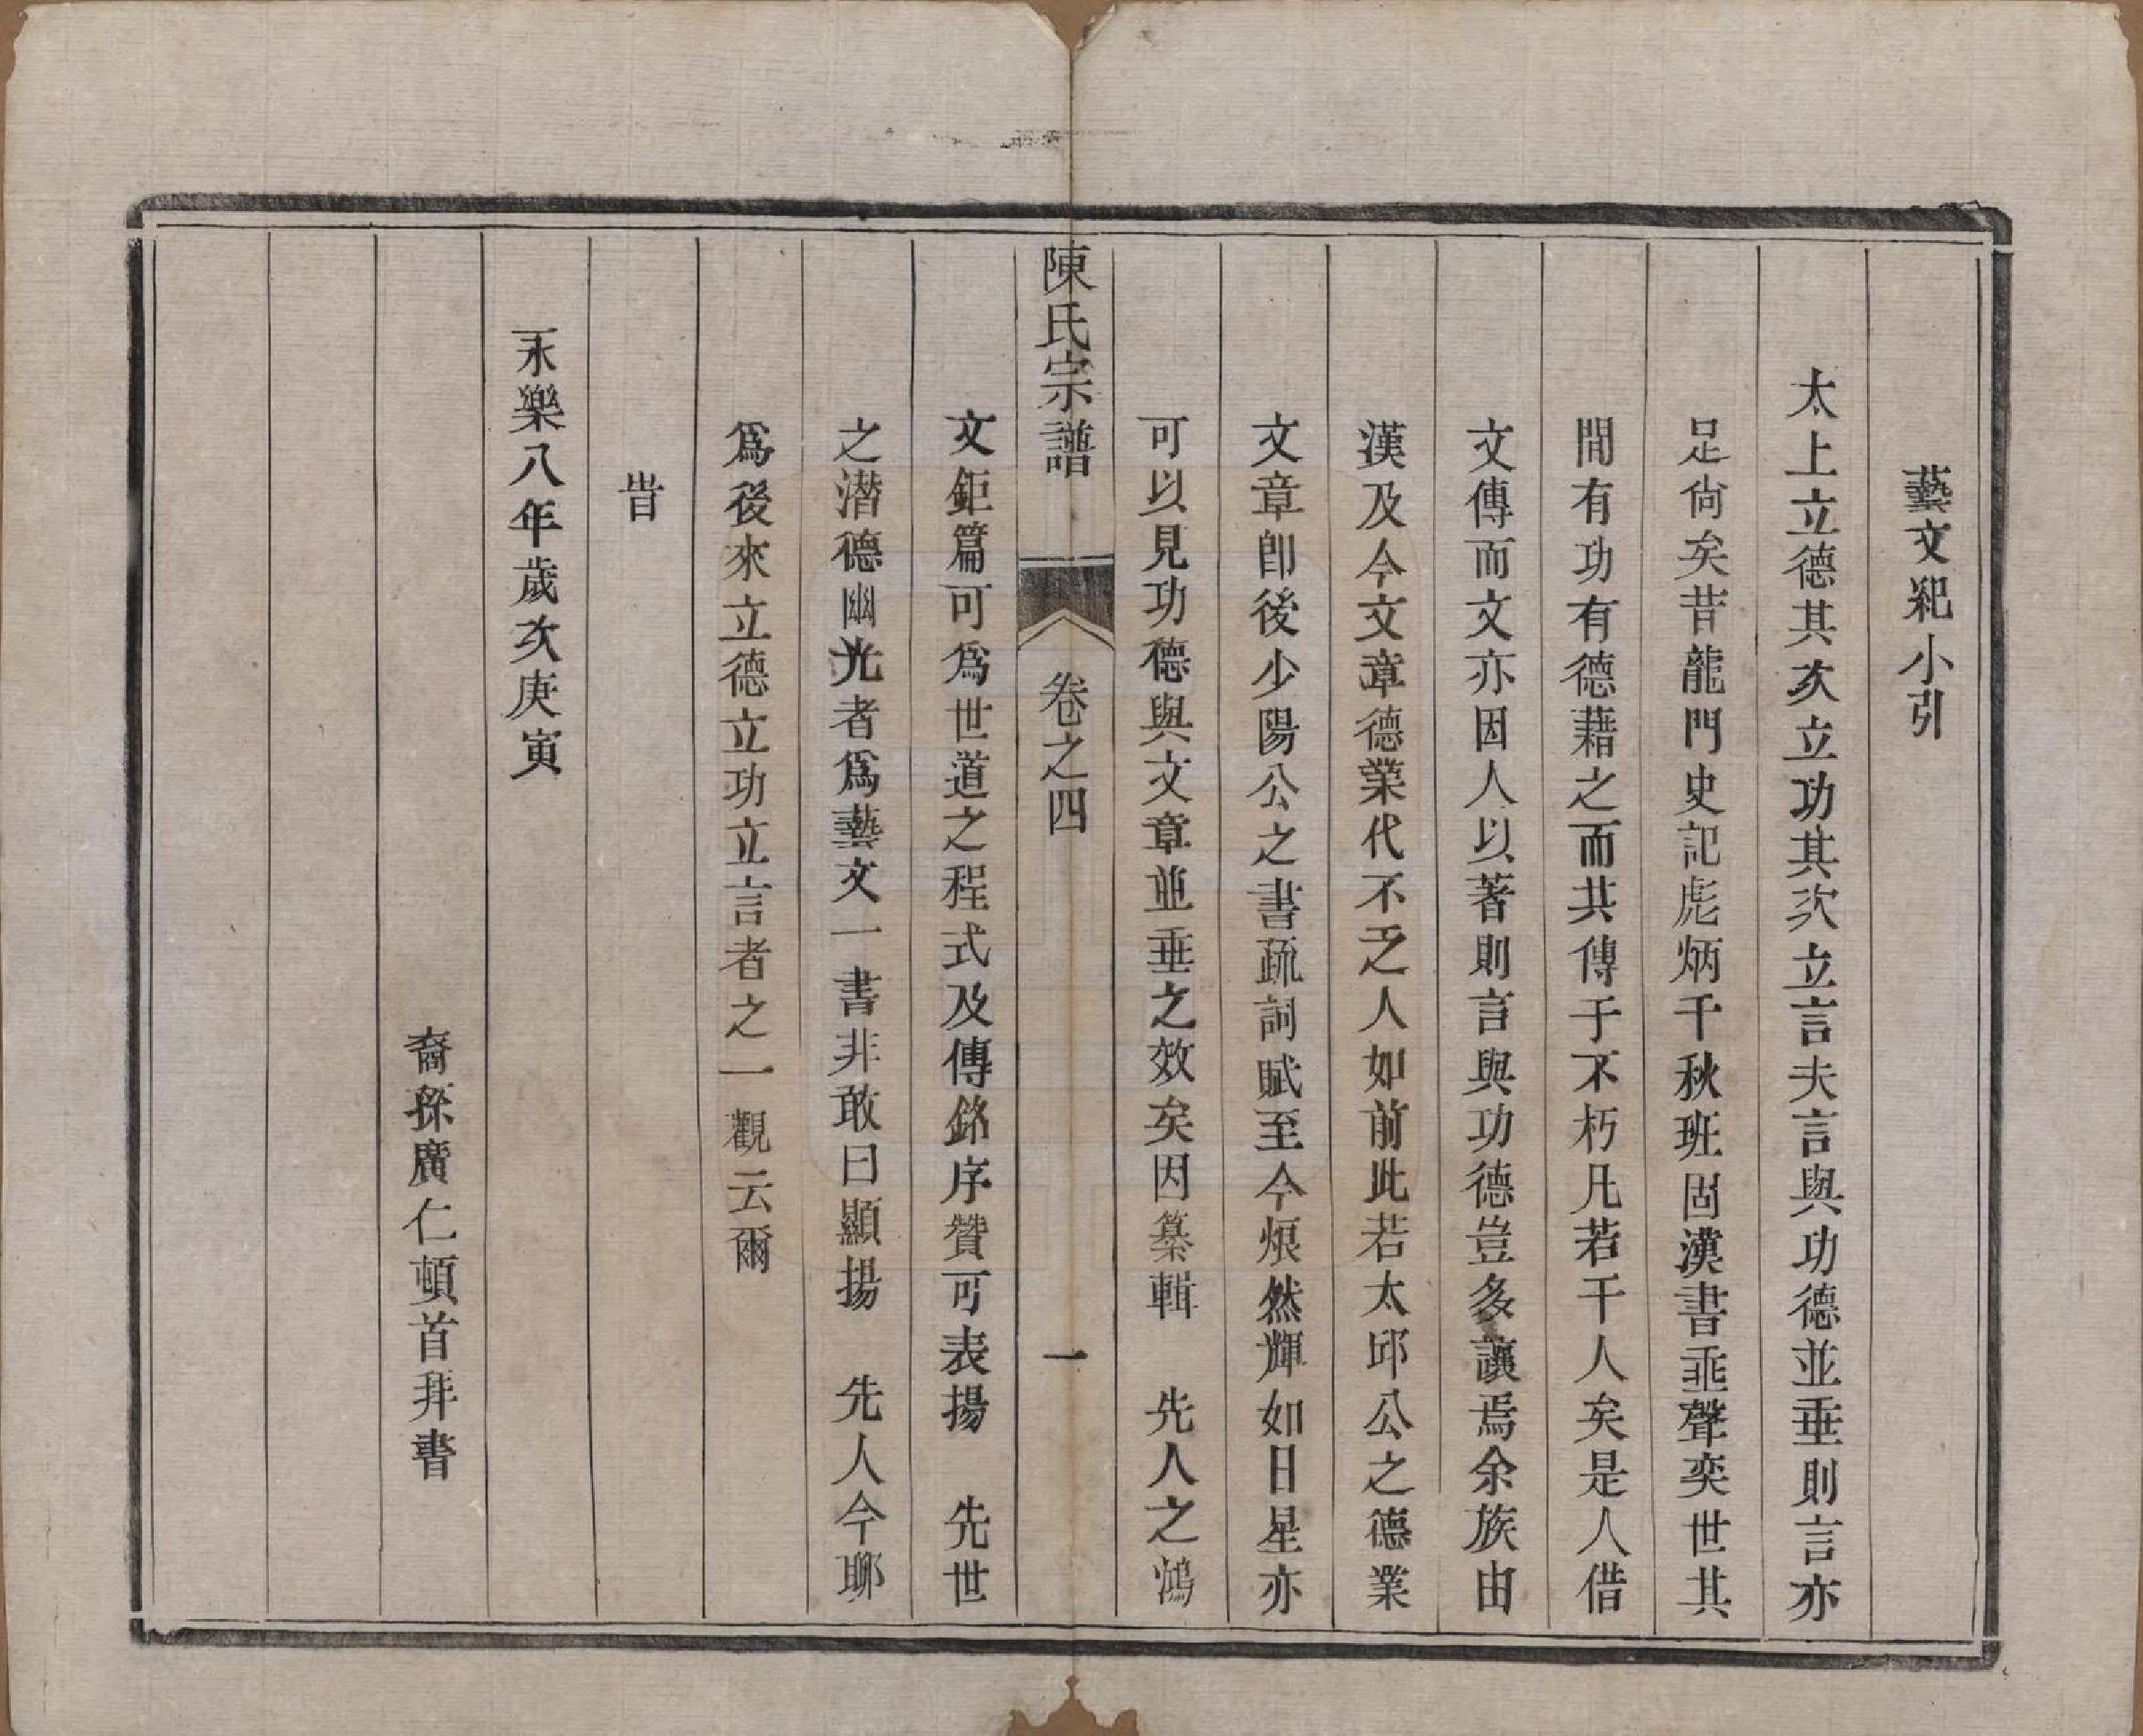 藝文紀小引
太上立德其次立功其次立言夫言與功德並垂則言亦
足尙矣昔龍門史記彪炳千秋班固漢書垂聲奕世其
間有功有德藉之而其傳于不朽凡若干人矣是人借
文傳而文亦因人以著則言與功德豈多讓焉余族由
漢及今文章德業代不乏人如前此若太邱公之德業
文章卽後少陽公之書疏詞賦至今烺然輝如日星亦
可以見功德與文章並垂之效矣因纂輯　先人之鴻
陳氏宗譜　卷之四　一
文鉅篇可爲世道之程式及傳銘序贊可表揚　先世
之潛德幽光者爲藝文一書非敢曰顯揚　先人今聊
爲後來立德立功立言者之一觀云爾
旹
永樂八年歲次庚寅
裔孫廣仁頓首拜書